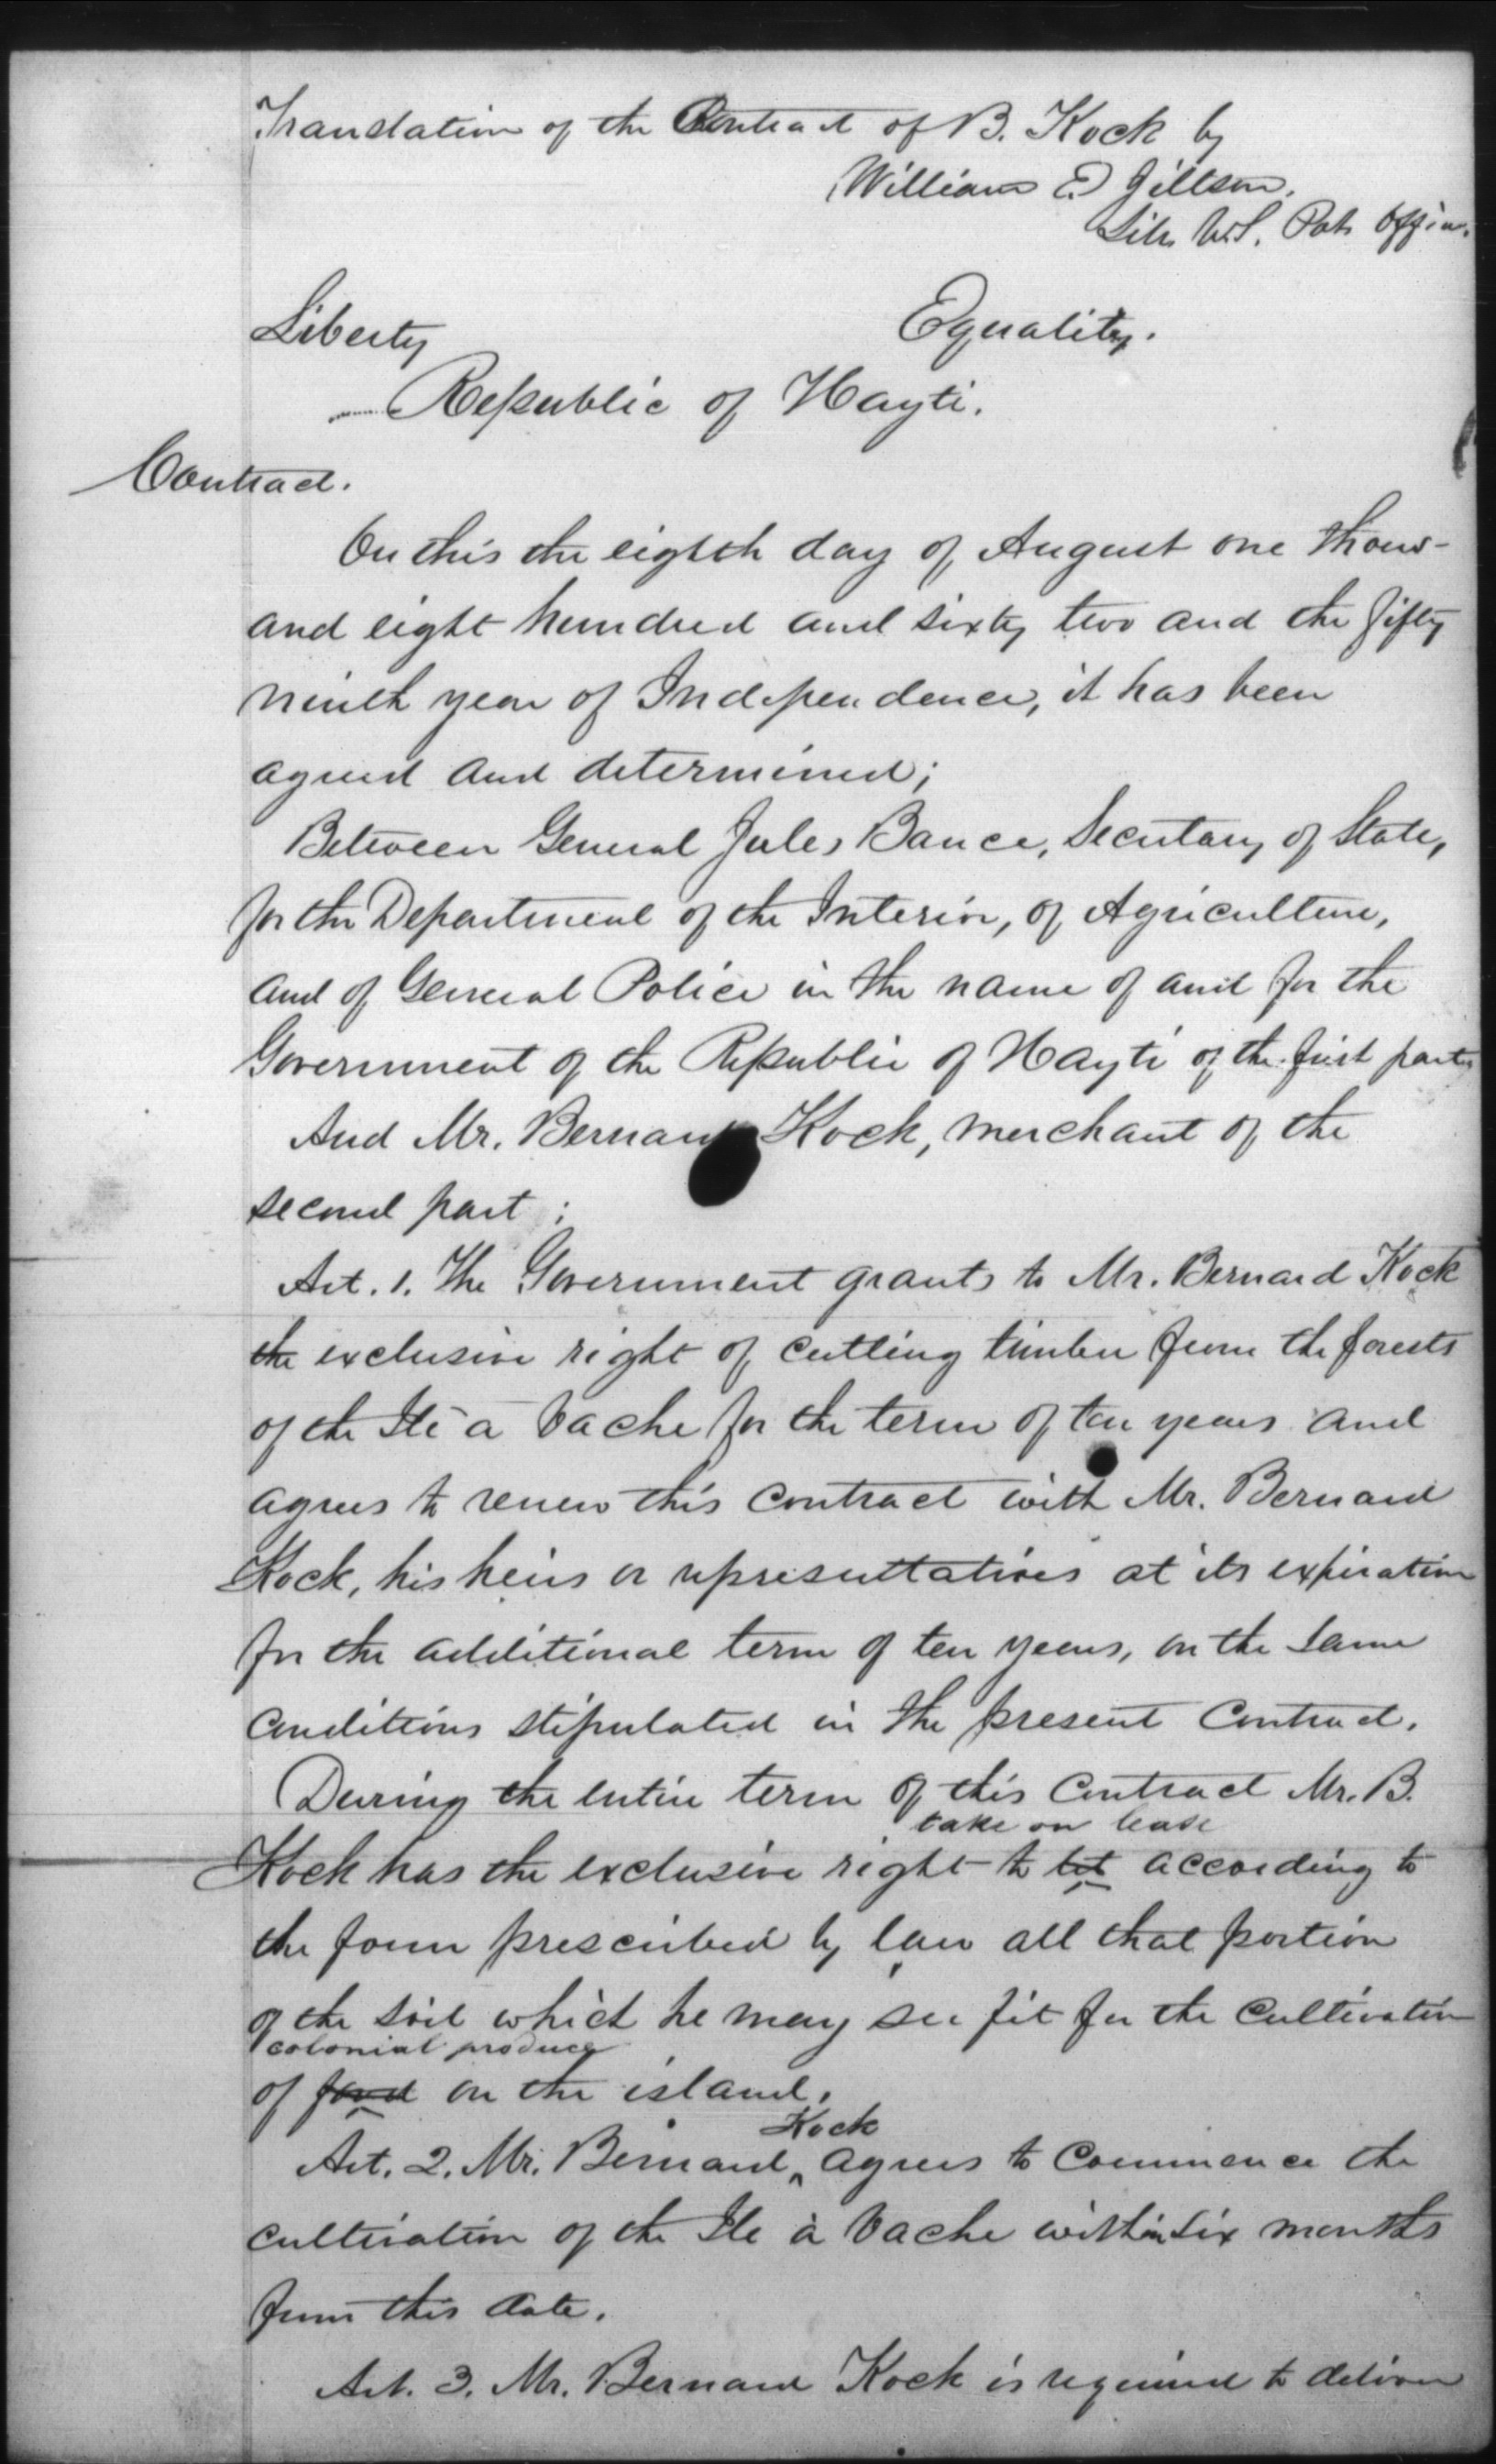 Translation of the Contract of B. Kock by
William E. Jillson.
Lib. U.S. Pat. Office.
Liberty Equality.
Republic of Hayti.
Contract.
On this the eighth day of August one thous-
and eight hundred and sixty two and the fifty
ninth year of Independence, it has been
agreed and determined;
Between General Jules Bance, Secretary of State,
for the Department of the Interior, of Agriculture,
and of General Police in the name of and for the
Government of the Republic of Hayti of the first part
And Mr. Bernard Kock, merchant of the
second part;
Art. 1. The Government grants to Mr. Bernard Kock
the exclusive right of cutting timber from the forests
of the Ile à Vache for the term of ten years and
agrees to renew this contract with Mr. Bernard
Kock, his heirs or representatives at its expiration
for the additional term of ten years, on the same
conditions stipulated in the present contract.
During the entire term of this contract Mr. B.
take on lease
Kock has the exclusive right to let according to
the form prescribed by law all that portion
of the soil which he may see fit for the cultivation
colonial produce
of food on the island.
Kock
Art. 2. Mr. Bernard agrees to commence the
cultivation of the Ile à Vache within six months
from this date.
Art. 3. Mr. Bernard Kock is required to deliver